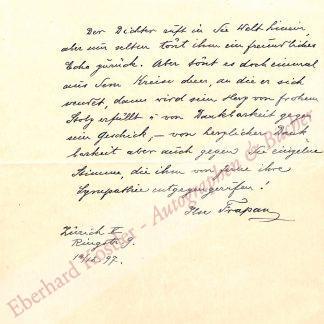 Der Dichter ruft in die Welt hinein,
aber nur selten tönt ihm ein freundliches
Echo zurück. Aber tönt es doch einmal
aus dem Kreise derer, an die er sich
wendet, dann wird sein Herz von frohem
Stolz erfüllt u. von Dankbarkeit gegen
sein Geschick, – von herzlicher Dank
barkeit aber auch gegen die einzelne
Stimme, die ihm von ferne ihre
Sympathie entgegengerufen!
Ilse Frapan
Zürich V
Ringstr. 9.
97.
Eberhard Köstler - Autographen & Bücher